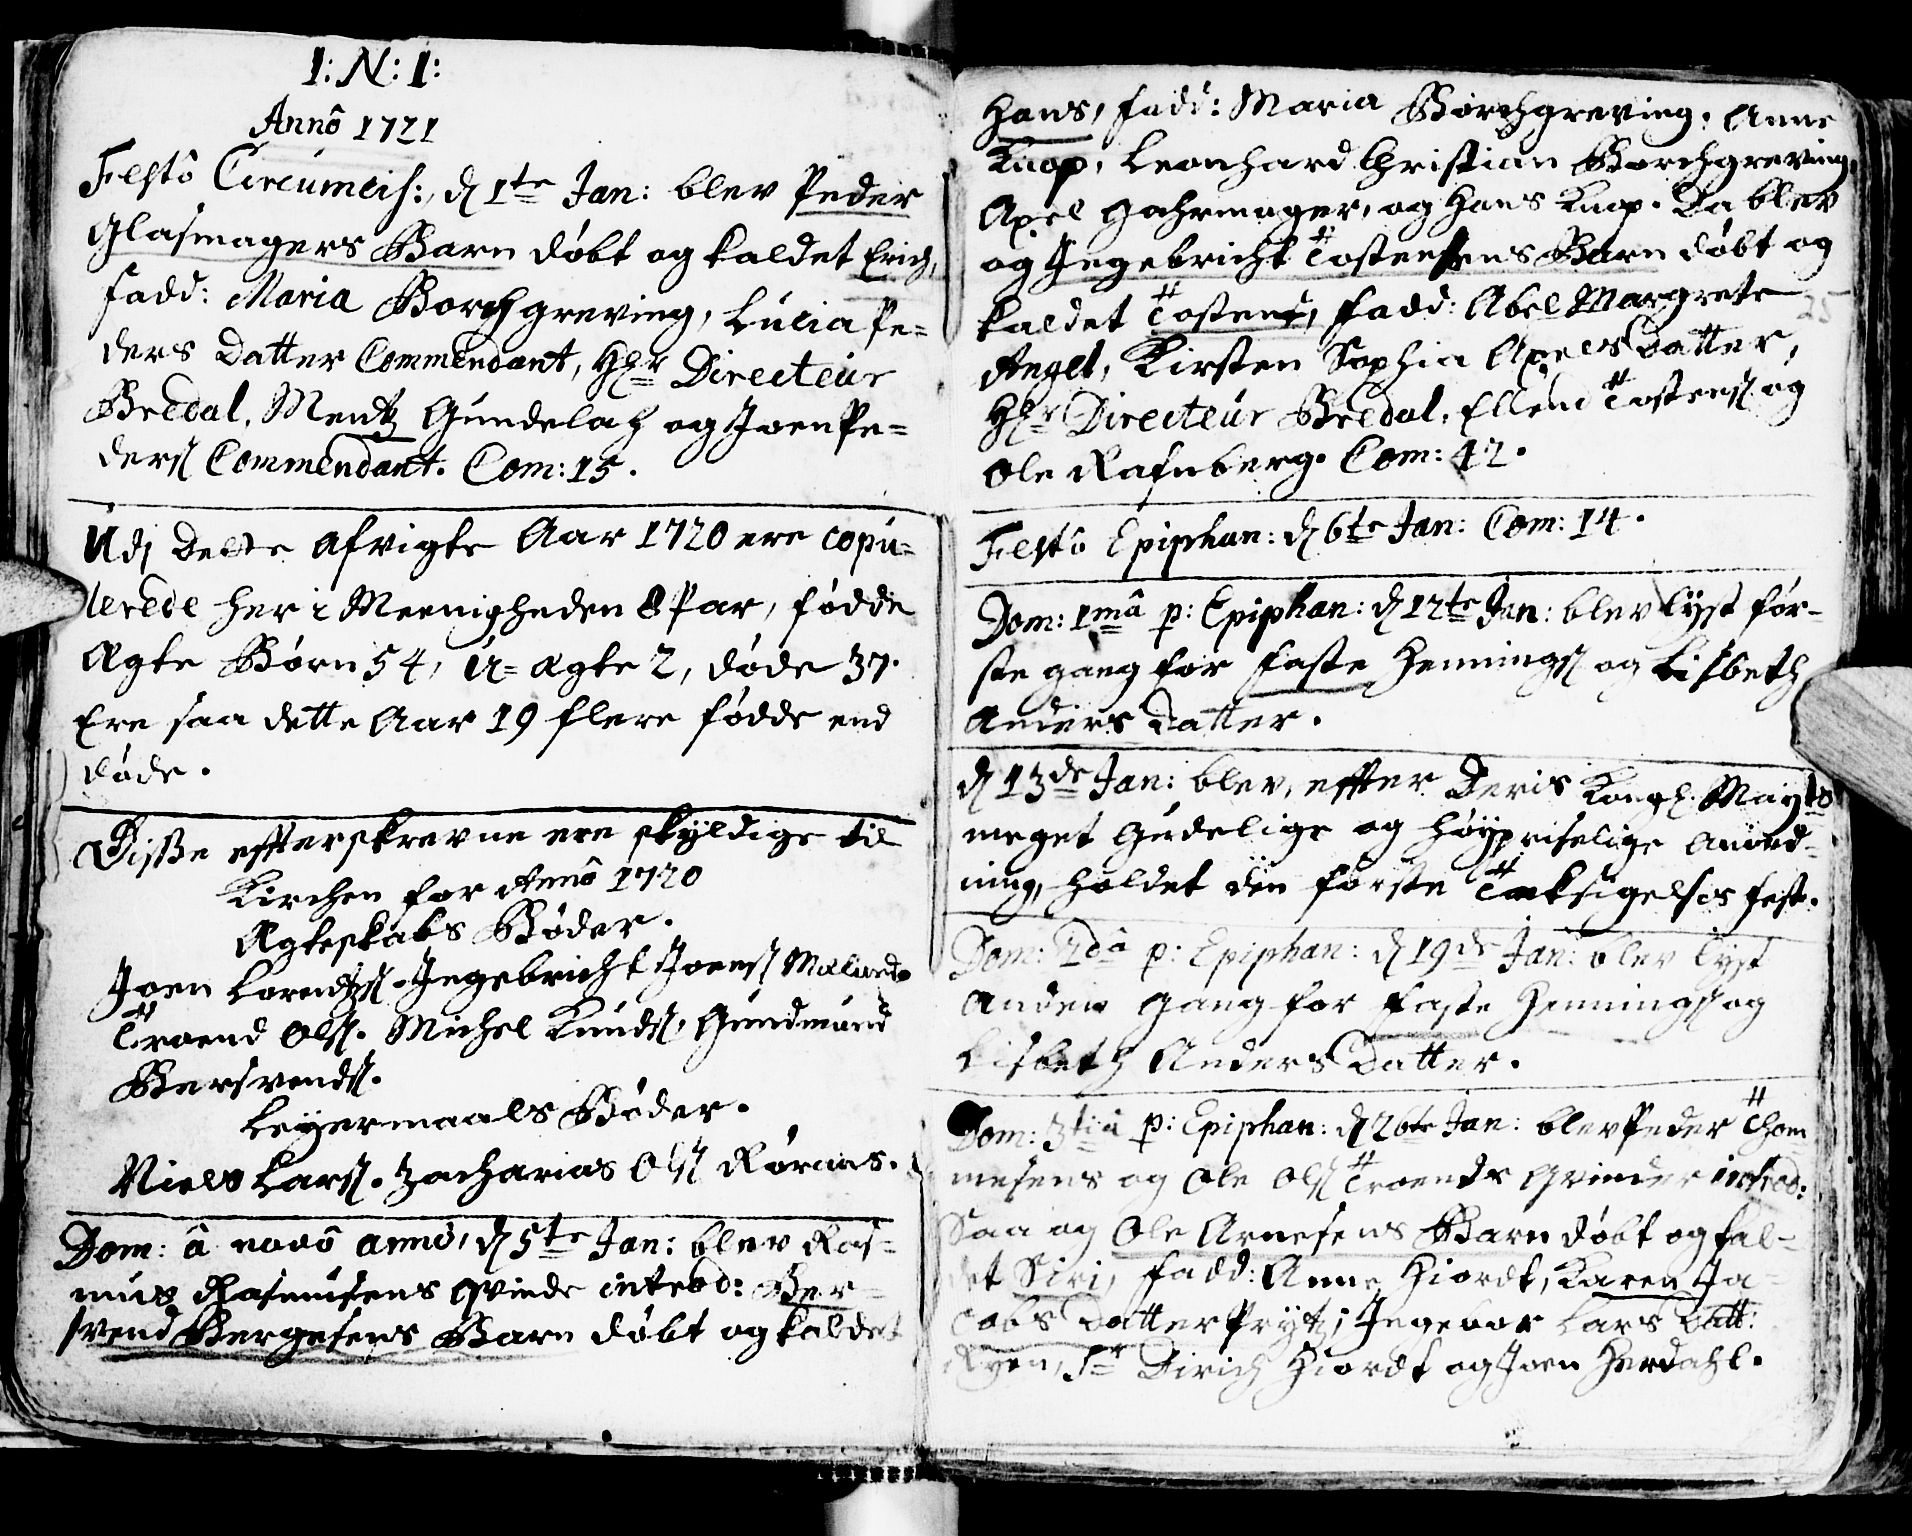 I: N: I:
Annô 1721
Festô Circumcis:, d 1te Jan: blev Peder
Glasmagers Barn døbt og kaldet Erich,
fadd: Maria Borchgreving, Lucia Pe=
ders Datter Commendant, Hr Directeur
Bredal, Mentz Gundelach og Joen Pe=
ders Commendant. Com: 15.
Udj Dette afvigte Aar 1720 ere copu=
lerede her i Meenigheden 8 Par, fødde
Ægte Børn 54, U=ægte 2, døde 37.
Ere saa dette Aar 19 flere fødde end
døde.
Disse effterskrevne ere skyldige til
Kirchen for Annô 1720
Ægteskabs Bøder.
Joen Lorentzs. Ingebricht Joens
Troend Ols. Michel Knuds, Gundmund
Bersvends.
Leyermaals Bøder.
Niels Lars. Zacharias Ols Røraas.
Dom: â novô annô, d 5te Jan: blev Ras=
mus Rasmusens qvinde introd: Ber=
svend Bergesens Barn døbt og kaldet
Hans, fadd: Maria Borchgreving, Anne
Knop, Leonhard Christian Borchgreving,
Axel Gahrmager, og Hans Knop. Da blev
og Ingebricht Tostensens Barn døbt og
kaldet Tosten, fadd: Abel Margrete
Angel, Kirsten Sophia Axels Datter,
Hr Directeur Bredal, Ellend Tostens og
Ole Rafnberg. Com: 42.
Festô Epiphan: d 6te Jan: Com: 14.
Dom: 1mâ p: Epiphan: d 12te Jan: blev lyst før=
ste gang for Faste Hennings og Lisbeth
Anders Datter.
d 13de Jan: blev, effter Deris Kongl. Mayts
meget Gudelige og høypriselige Anord=
ning, holdet den første Taksigelses fest.
Dom: 2dâ p: Epiphan: d 19de Jan: blev lyst
anden gang for Faste Hennings og
Lisbeth Anders Datter.
Dom: 3tiâ p: Epiphan: d 26te Jan: blev Peder Thom
mesens og Ole Ols Troends qvinder introd:
Saa og Ole Arnesens Barn døbt og kal=
det Siri, fadd: Anne Hiordt, Karen Ja=
cobs Datter Prytz, Ingebor Lars Datt:
Ryen, Sr Dirich Hiordt og Joen Herdahl.